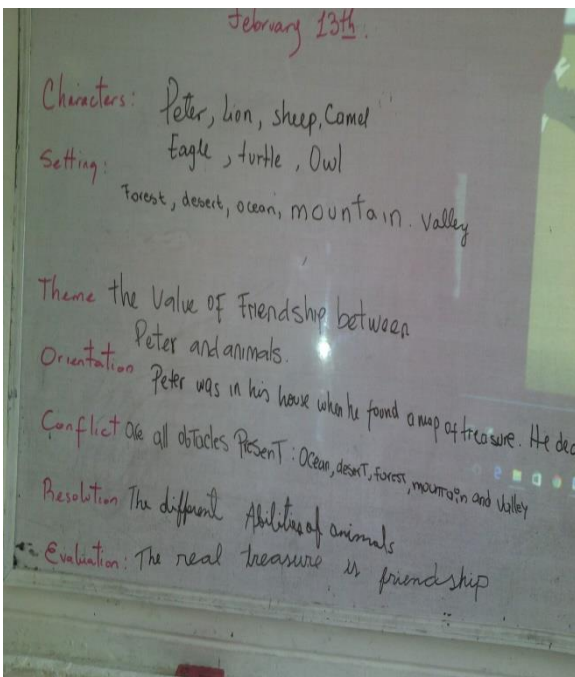 February 13th.
Characters: Peter, Lion, sheep, Camel
Eagle, turtle, Owl
Setting:
Forest, desert, ocean, mountain. Valley
Theme the Value of Friendship between
Peter and animals.
Orientation Peter was in his house when he found a map of treasure. He dec
Conflict are all obTacles PresenT: Ocean, deserT, forest, mountain and Valley
Resolution The different Abilities of animals
Evaluation: The real treasure is friendship